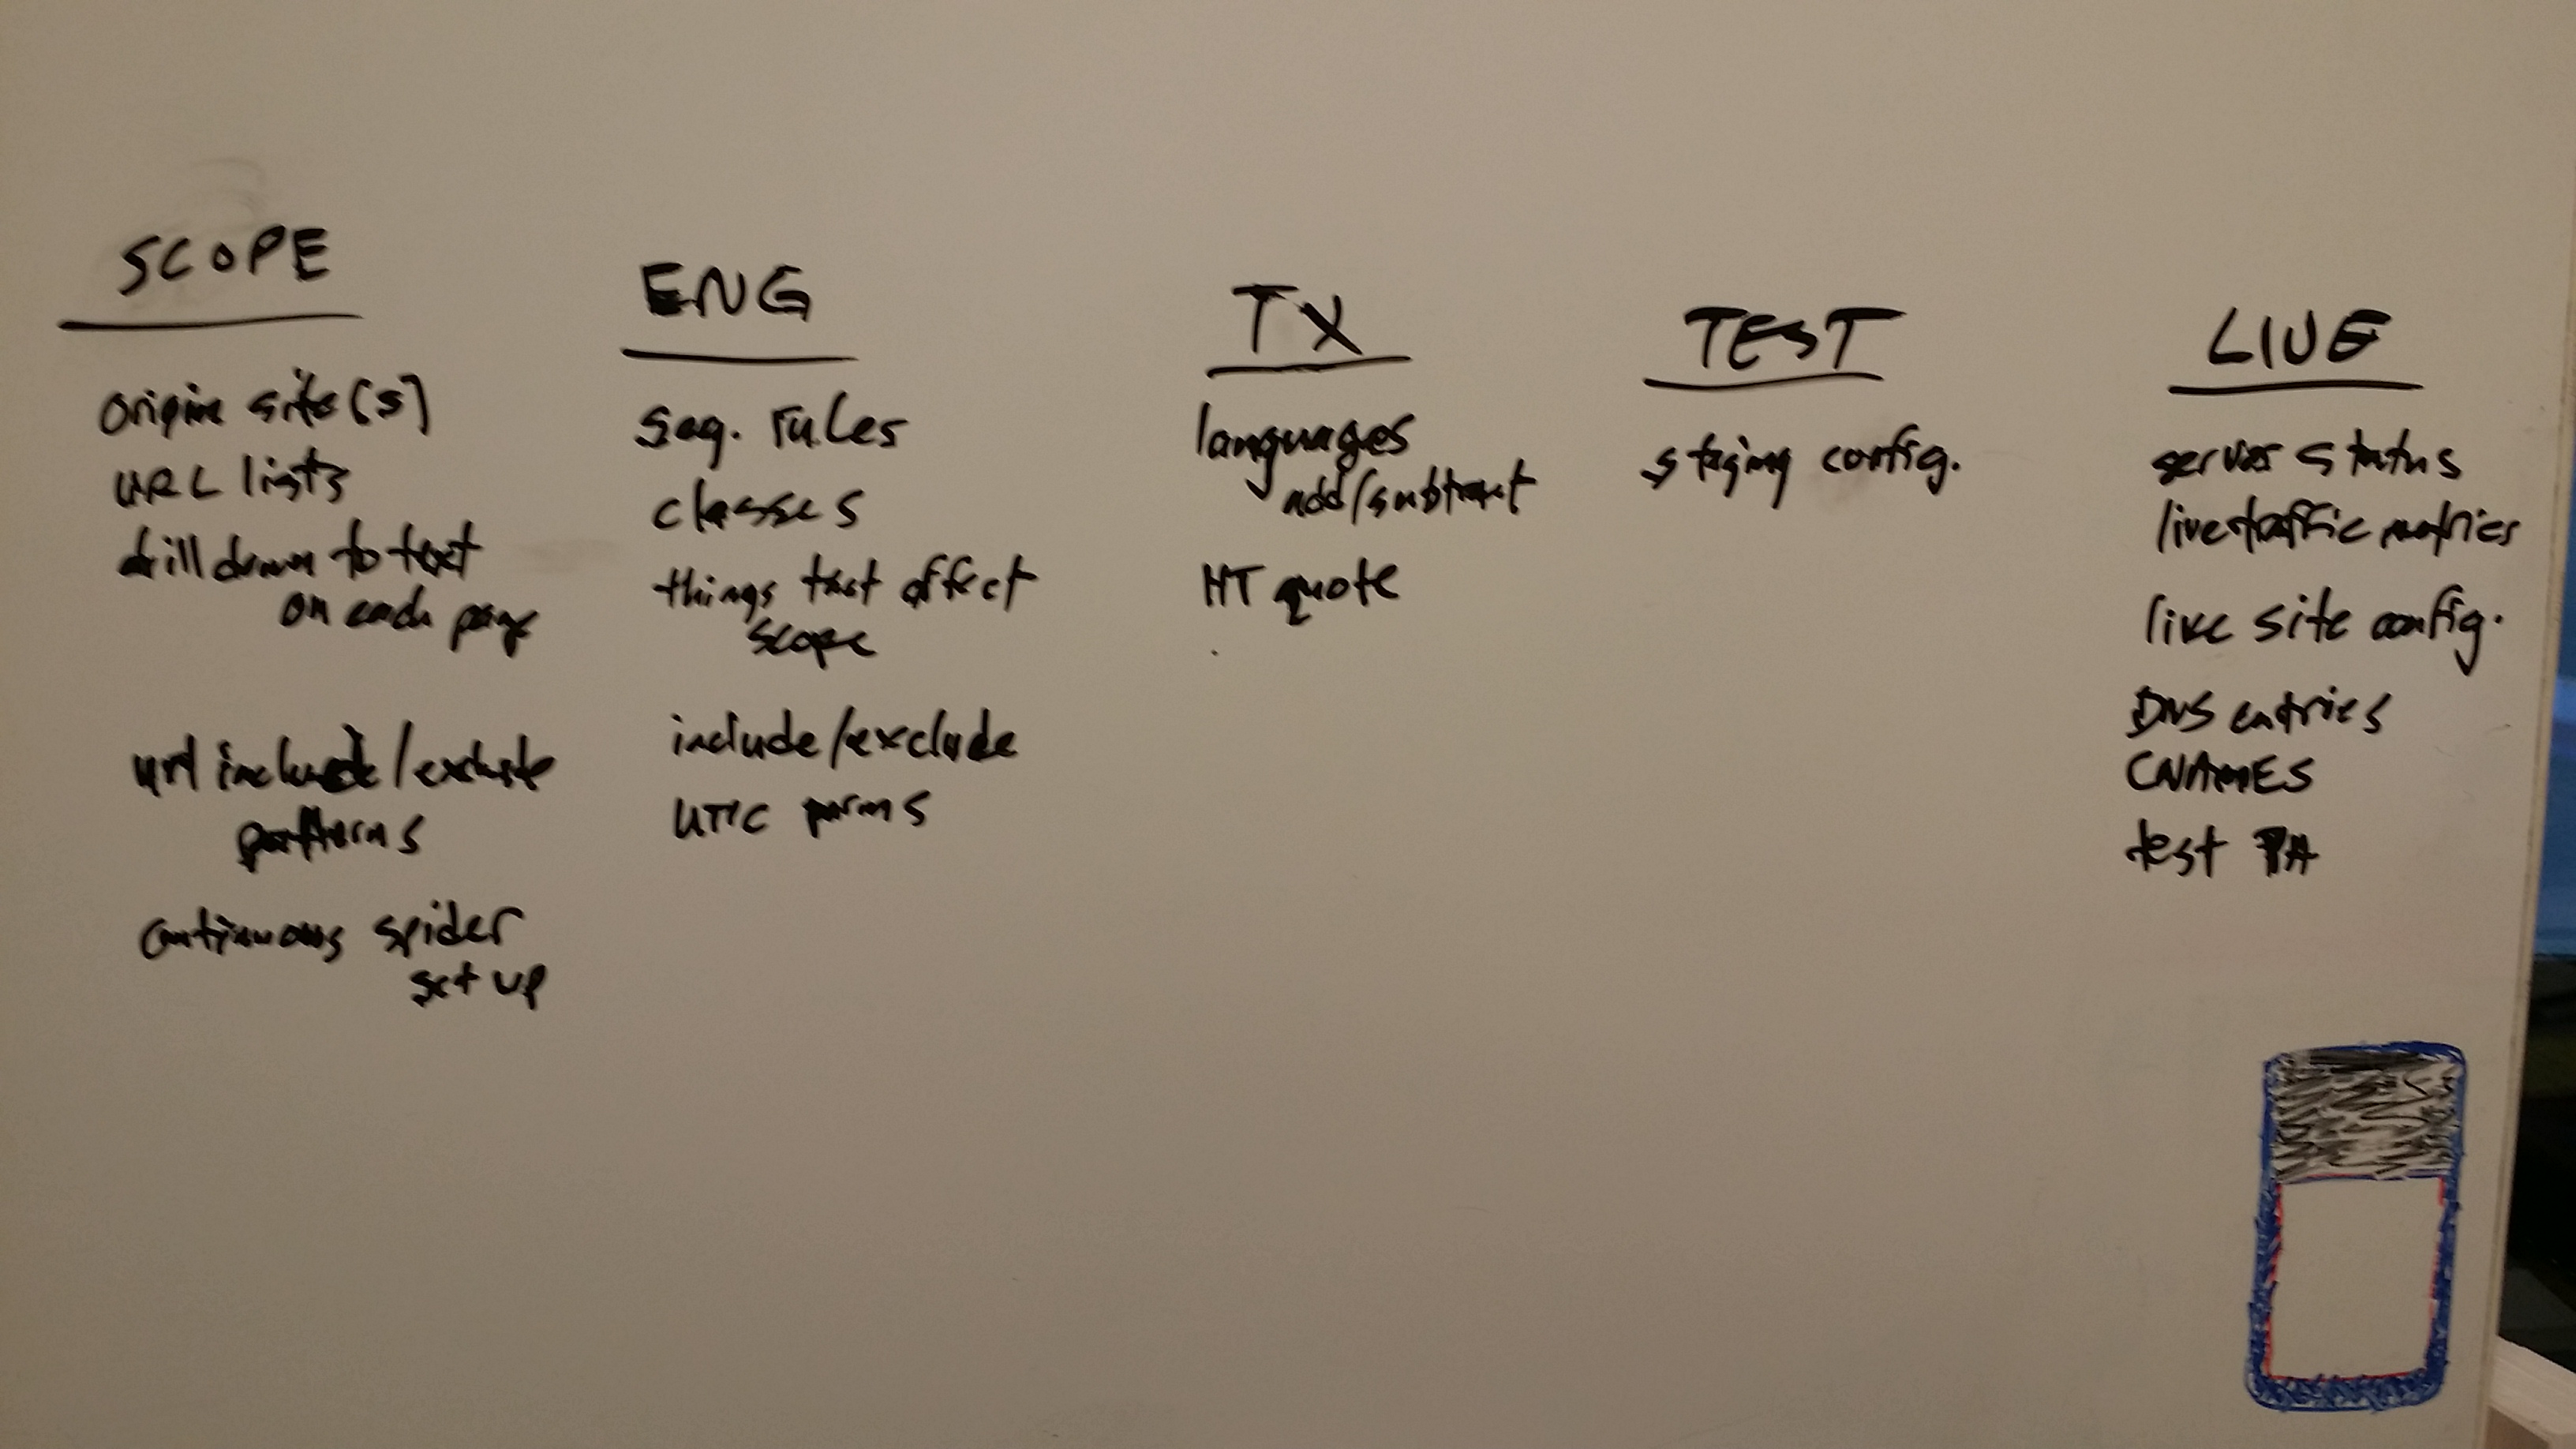 SCOPE
origin site(s)
URL lists
drill down to text
on each page
url include/exclude
patterns
continuous spider
set up
ENG
seg. rules
classes
things that affect
scope
include/exclude
parms
TX
languages
add/subtract
HT quote
TEST
staging config.
LIVE
server status
live traffic metrics
live site config.
DNS entries
CNAMES
test